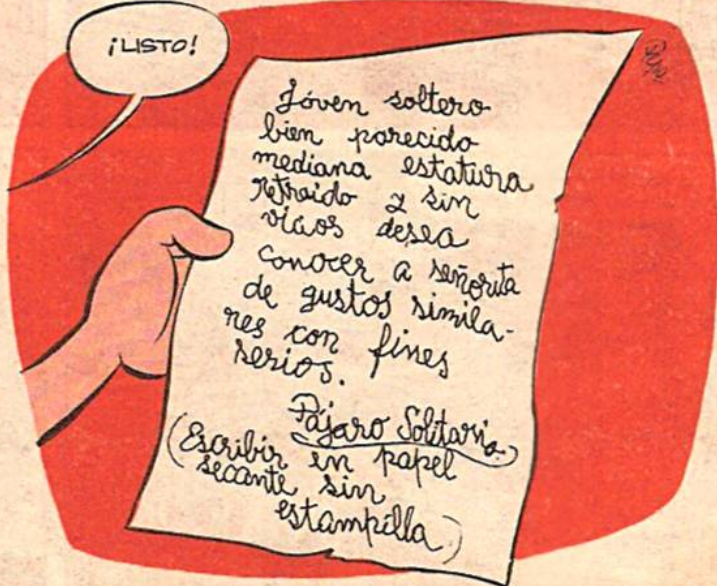 ¡LISTO!
Jóven soltero
bien parecido
mediana estatura
retraído y sin
vicios desea
conocer a señorita
de gustos simila-
res con fines
serios.
Pájaro Solitario
(Escribir en papel
secante sin
estampilla)